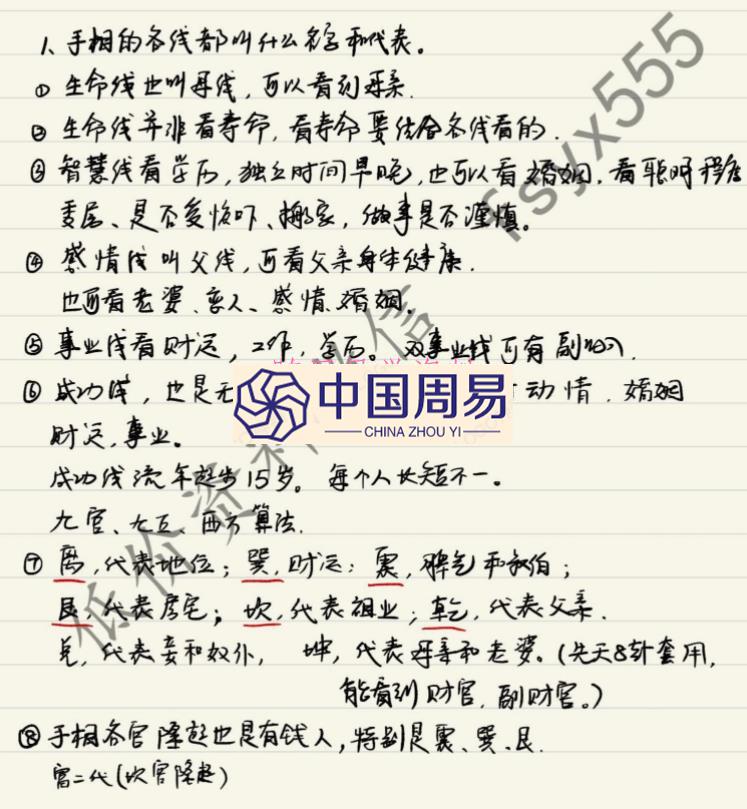 1、手相的各线都叫什么名字和代表。
① 生命线也叫母线,可以看到母亲.
② 生命线并非看寿命,看寿命要结合各线看的.
③ 智慧线看学历,独立时间早晚,也可以看婚姻.看聪明程度
是否受惊吓、搬家,做事是否谨慎。
④ 感情线叫父线,可看父亲身体健康.
也可看老婆、恋人、感情.婚姻。
⑤ 事业线看财运,工作,学历。双事业线可有副
⑥ 成功线,也是 动情.婚姻
财运,事业。
成功线流年起步15岁。每个人长短不一。
九宫、九五、西方算法.
⑦ 离,代表地位;巽,财运;震,脾气和叔伯;
艮,代表房宅;坎,代表祖业;乾,代表父亲.
兑,代表妾和奴仆, 坤,代表母亲和老婆。(先天8卦套用,
能看到财官.副财官。)
⑧ 手相各宫隆起也是有钱人,特别是震、巽、艮.
富二代(坎宫隆起)
中国周易
CHINA ZHOU YI
fsyx555
低价资料
信